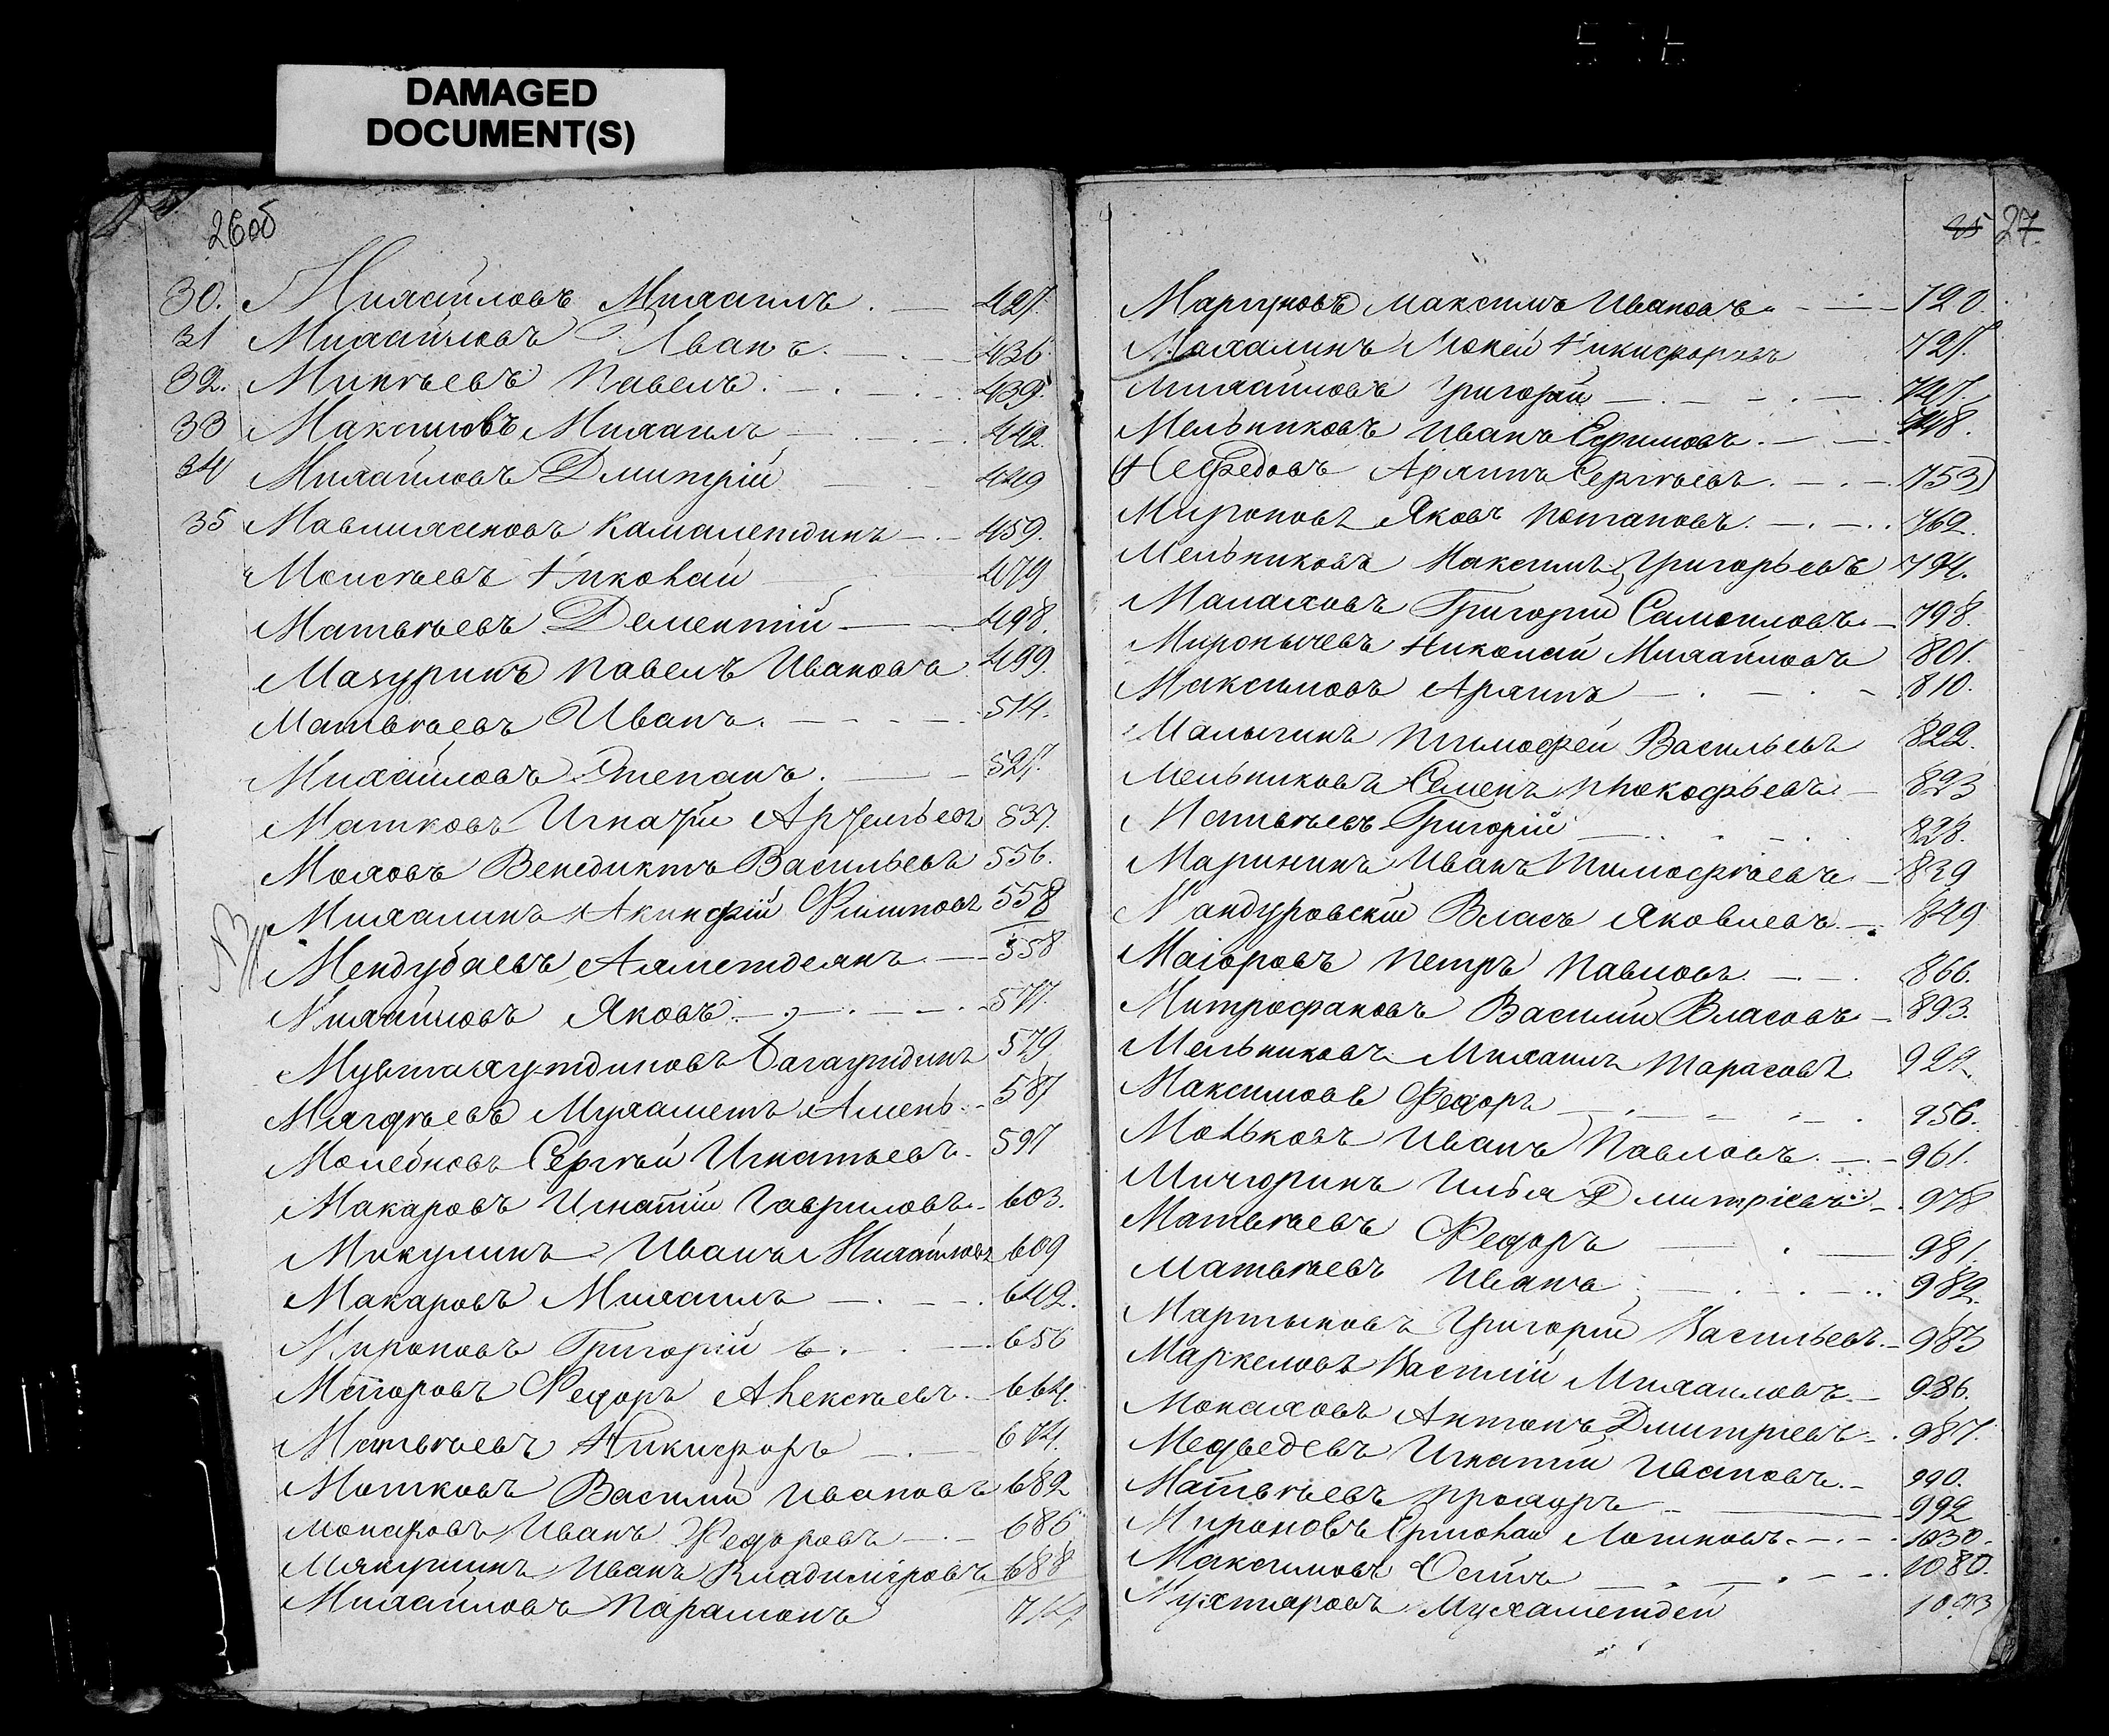 DAMAGED
DOCUMENT(S)
26об
30. Михайловъ Михаилъ. — 427.
31 Михайловъ Иванъ. — . — 436.
32. Михѣевъ Павелъ. — . — . 439.
33 Максимовъ Михаилъ — . — . 442.
34 Михайловъ Дмитрій — 449
35 Мавлихасновъ Камалетдинъ — . — 459.
Моисѣевъ Николай 479
Матвѣевъ Дементій — — 498.
Мазуринъ Павелъ Ивановъ 499.
Матвѣевъ Иванъ. — - — - 514.
Михайловъ Степанъ. — - 527.
Матковъ Игнатій Артемьевъ 537.
Моховъ Венедиктъ Васильевъ 556.
Михалинъ Акинфій Филиповъ 558
NB Мендубаевъ Ахметдеянъ — 558
Михайловъ Яковъ — . — . — 577.
Мувтахутдиновъ Багаутдинъ 579
Мухаметъ Аменъ. - 587
Молебновъ Сергѣй Игнатьевъ. 597
Макаровъ Игнатій Гавриловъ. - 603.
Микулинъ Иванъ Михайловъ 609
Макаровъ Михаилъ — . — . 642.
Мироновъ Григорій — 656
Маіоровъ Федоръ Алексѣевъ. — 664.
Матвѣевъ Никифоръ — . — 674.
Мотковъ Василій Ивановъ 682
Иванъ Федоровъ — . — 686
Мякушинъ Иванъ Владиміровъ 688
Михайловъ Парамонъ 714
25 27.
Максимъ Ивановъ. - — . — 720.
Махалинъ Мокей Никифоровъ 727.
Михайловъ Григорій — . — - . — . 747.
Мельниковъ Иванъ Ефимовъ. — . — 748.
(Нефедовъ Архипъ Сергѣевъ. — . — 753)
Мироновъ Яковъ Потаповъ. — . — .. 769.
Мельниковъ Максимъ Григорьевъ 794.
Малаховъ Григорій Самойловъ. — 798.
Миронычевъ Николай Михайловъ 801.
Максимовъ Архипъ — . — . - 810.
Малыгинъ Тимофей Васильевъ 822.
Мельниковъ Семенъ Прокофьевъ. — 823
Матвѣевъ Григорій — . . 828.
Марининъ Иванъ Тимофѣевъ. — 839
Мандуровскій Власъ Яковлевъ. — . 849
Маіоровъ Петръ Павловъ — . — . 866.
Митрофановъ Василій Власовъ. — 893.
Мельниковъ Михаилъ Тарасовъ 924.
Максимовъ Федоръ — . — - — . 956.
Моньковъ Иванъ Павловъ. — . — 961.
Мичюринъ Илья Дмитріевъ. — . 978
Матвѣевъ Федоръ — . — 981.
Матвѣевъ Иванъ . — . — . — .. 982.
Мартыновъ Григорій Васильевъ. — 983
Маркеловъ Василій Михайловъ. — 986.
Монаховъ Антонъ Дмитріевъ. - . 987.
Медведевъ Игнатій Ивановъ. — 990.
Матвѣевъ Прохоръ - — 992
Мироновъ Ермолай Логиновъ. — . — . 1030.
Максимовъ Осипъ — . — . — . 1080.
Мухтаровъ Мухаметдей 1093